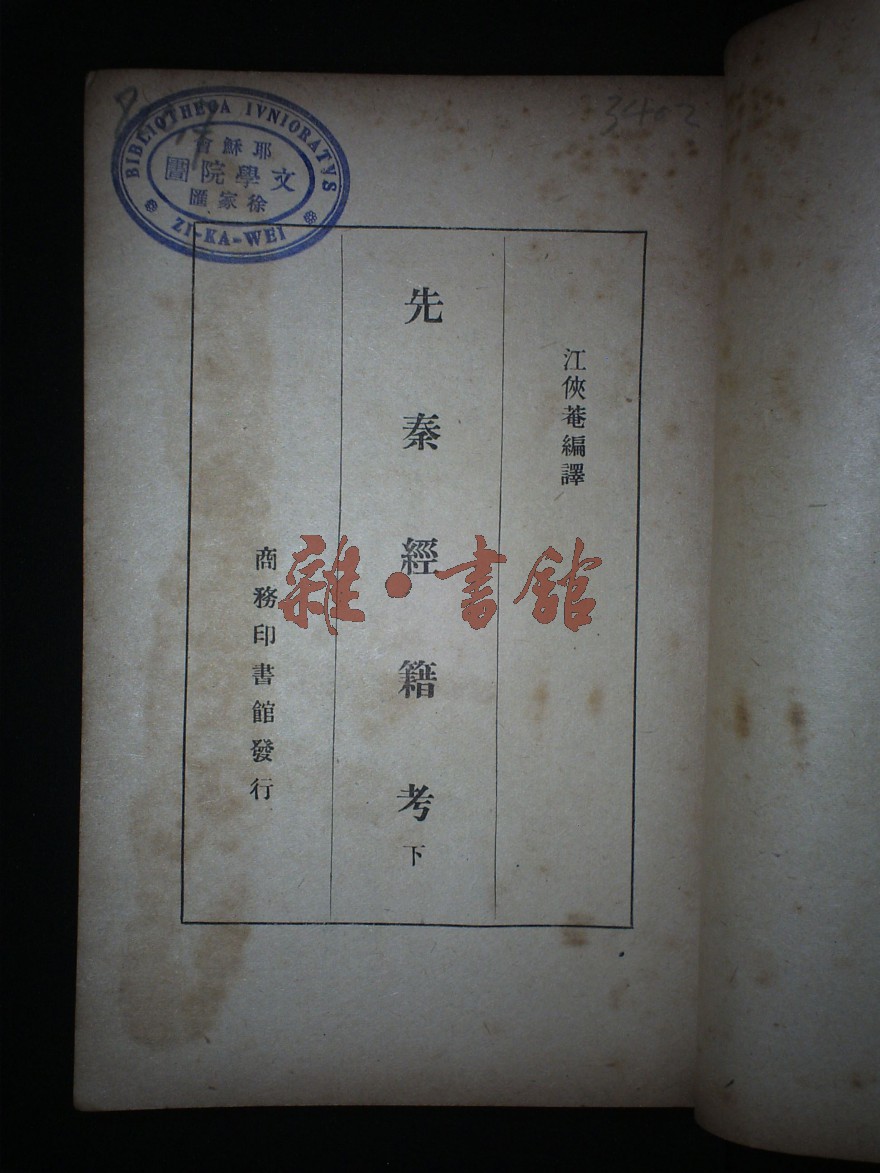 BIBLIOTHECA IVNIORATVS
耶穌會
文學院圖
徐家匯
ZI-KA-WEI
江俠菴編譯
先秦經籍考 下
商務印書館發行
雜·書館